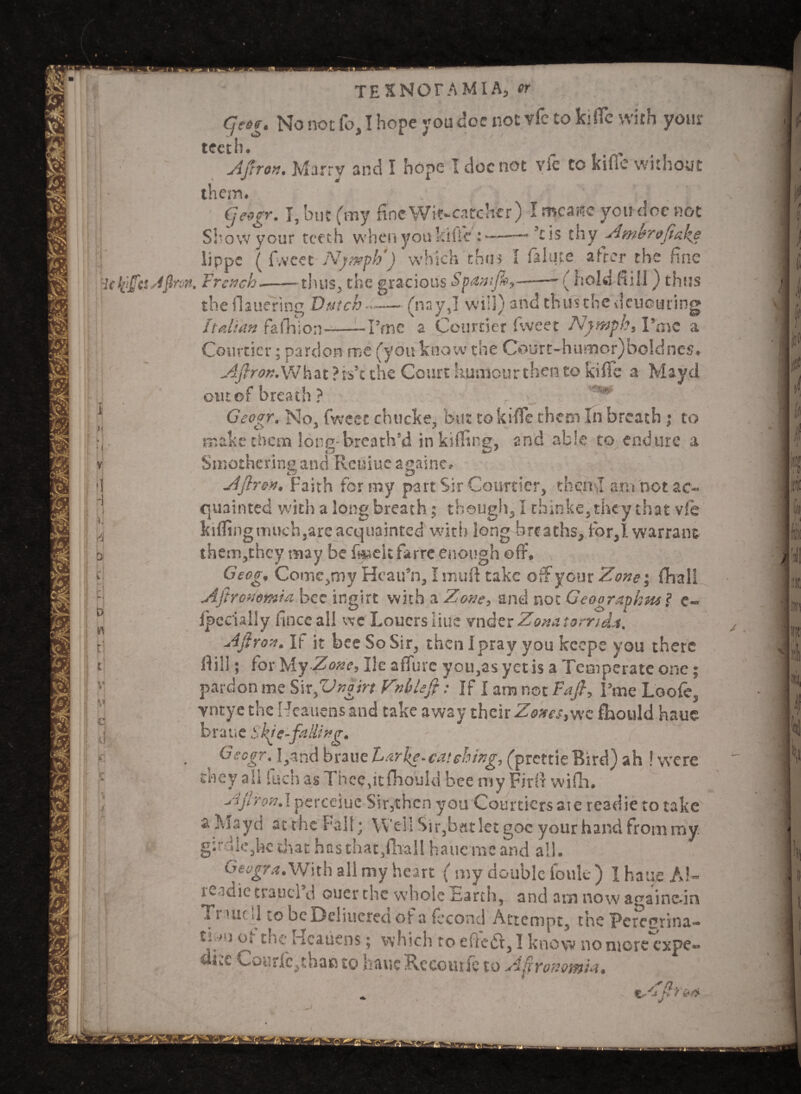 TEXNOTAMIA, or
Geog. No not so, I hope you doe not vse to kisse with your
teeth.
Astron. Marry and I hope I doe not vse to kisse without
them.
Geogr. I, but (my fine Wit-catcher) I meane you doe not
Show your teeth when you kisse :—— 'tis thy Ambrosiake
lippe ( sweet Nymph ) which thus I salute after the fine
He kisses Astron. French —— thus, the gracious Spanish, —— ( hold still ) thus
the slauering Dutch —— (nay, I will) and thus the deuouring
Italian fashion —— I'me a Courtier sweet Nymph, I'me a
Courtier ; pardon me (you know the Court-humor) boldnes.
Astron. What ? is't the Court humour then to kisse a Mayd
out of breath ?
Geogr. No, sweet chucke, but to kisse them In breath ; to
make them long-breath'd in kissing, and able to endure a
Smothering and Reuiue againe.
Astron. Faith for my part Sir Courtier, then I am not ac-
quainted with a long breath ; though, I thinke, they that vse
kissing much, are acquainted with long breaths, for, I warrant
them, they may be smelt farre enough off.
Geog. Come, my Heau'n, I must take off your Zone ; shall
Astronomia bee ingirt with a Zone, and not Geographus ? e-
specially since all we Louers liue vnder Zona torrida.
Astron. If it bee So Sir, then I pray you keepe you there
still ; for My Zone, Ile assure you, as yet is a Temperate one ;
pardon me Sir, Vngirt Vnblest : If I am not Fast, I'me Loose,
vntye the Heauens and take away their Zones, we should haue
braue Skie-falling.
Geogr. I, and braue Larke-catching, (prettie Bird) ah ! were
they all such as Thee, it should bee my First wish.
Astron. I perceiue Sir, then you Courtiers are readie to take
a Mayd at the Fall ; Well Sir, but let goe your hand from my
girdle, he that has that, shall haue me and all.
Geogra. With all my heart ( my double soule ) I haue Al-
readie trauel'd ouer the whole Earth, and am now againe in
Trauell to be Deliuered of a second Attempt, the Peregrina-
tion of the Heauens ; which to effect, I know no more expe-
dite Course, than to haue Recourse to Astronomia.
Astron